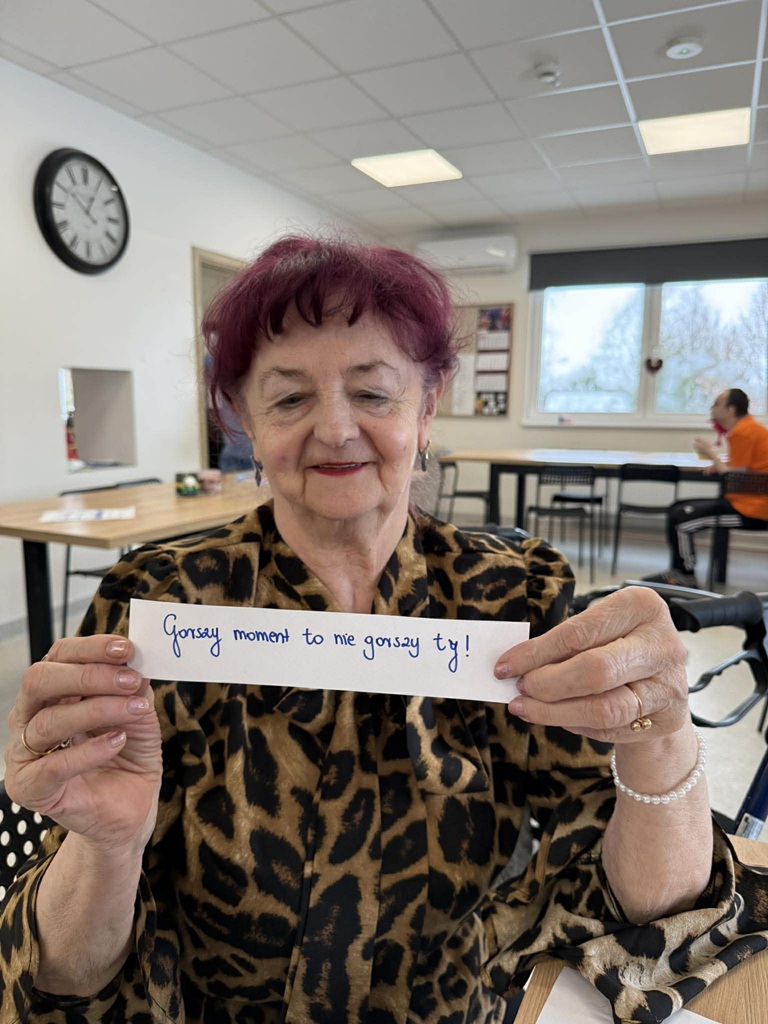 Gorszy moment to nie gorszy ty!